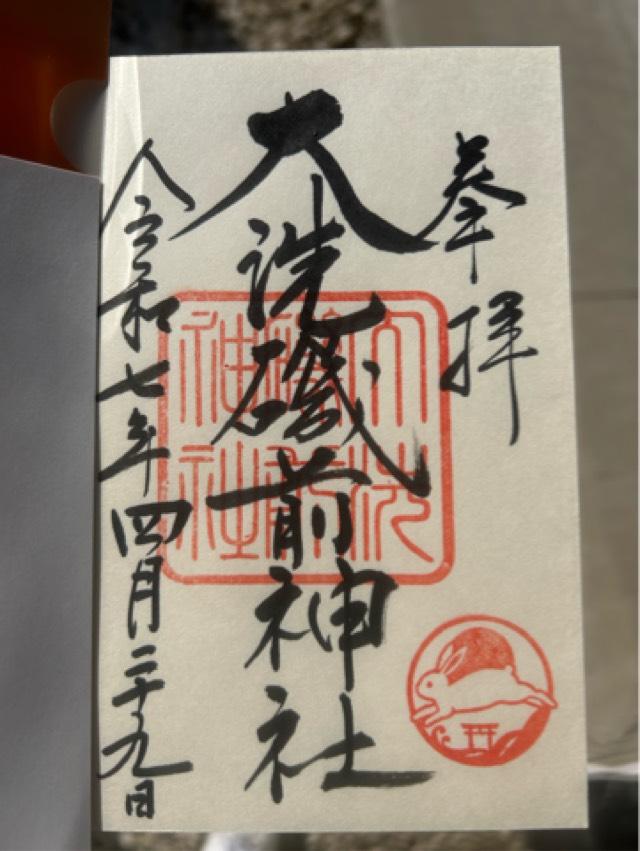 奉拝
大洗磯前神社
大洗
磯前
神社
令和七年四月二十九日